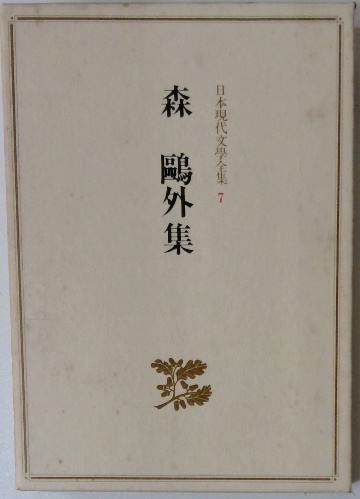 日本現代文學全集 7
森 鷗外集